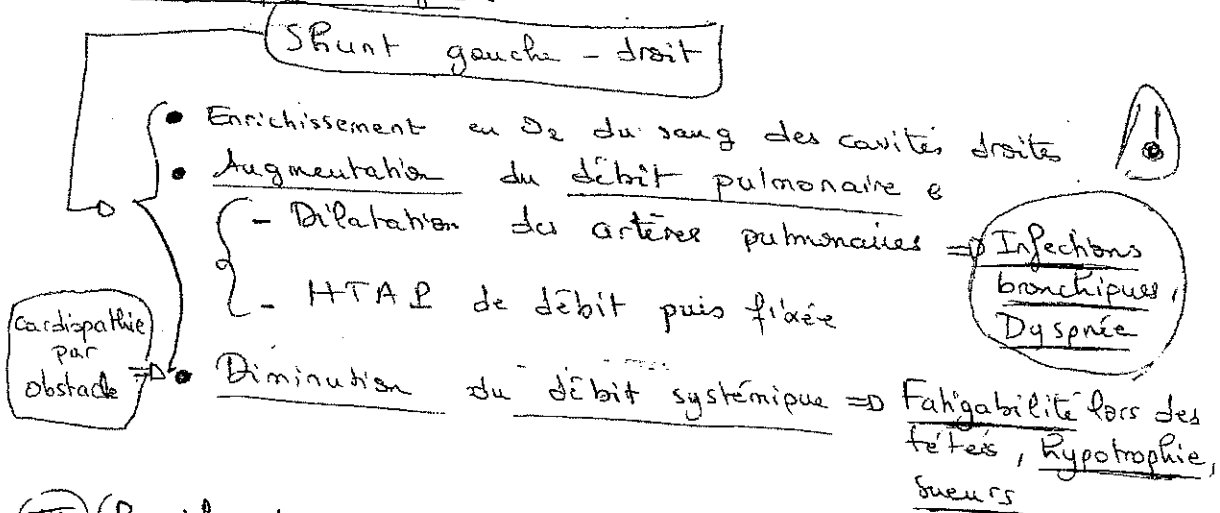 Shunt gauche - droit
• Enrichissement en O2 du sang des cavités droites
• Augmentation du débit pulmonaire :
- Dilatation des artères pulmonaires => Infections
bronchiques,
Dyspnée
- HTAP de débit puis fixée
Cardiopathie
par
obstacle =>
• Diminution du débit systémique => Fatigabilité lors des
tétées, hypotrophie,
sueurs